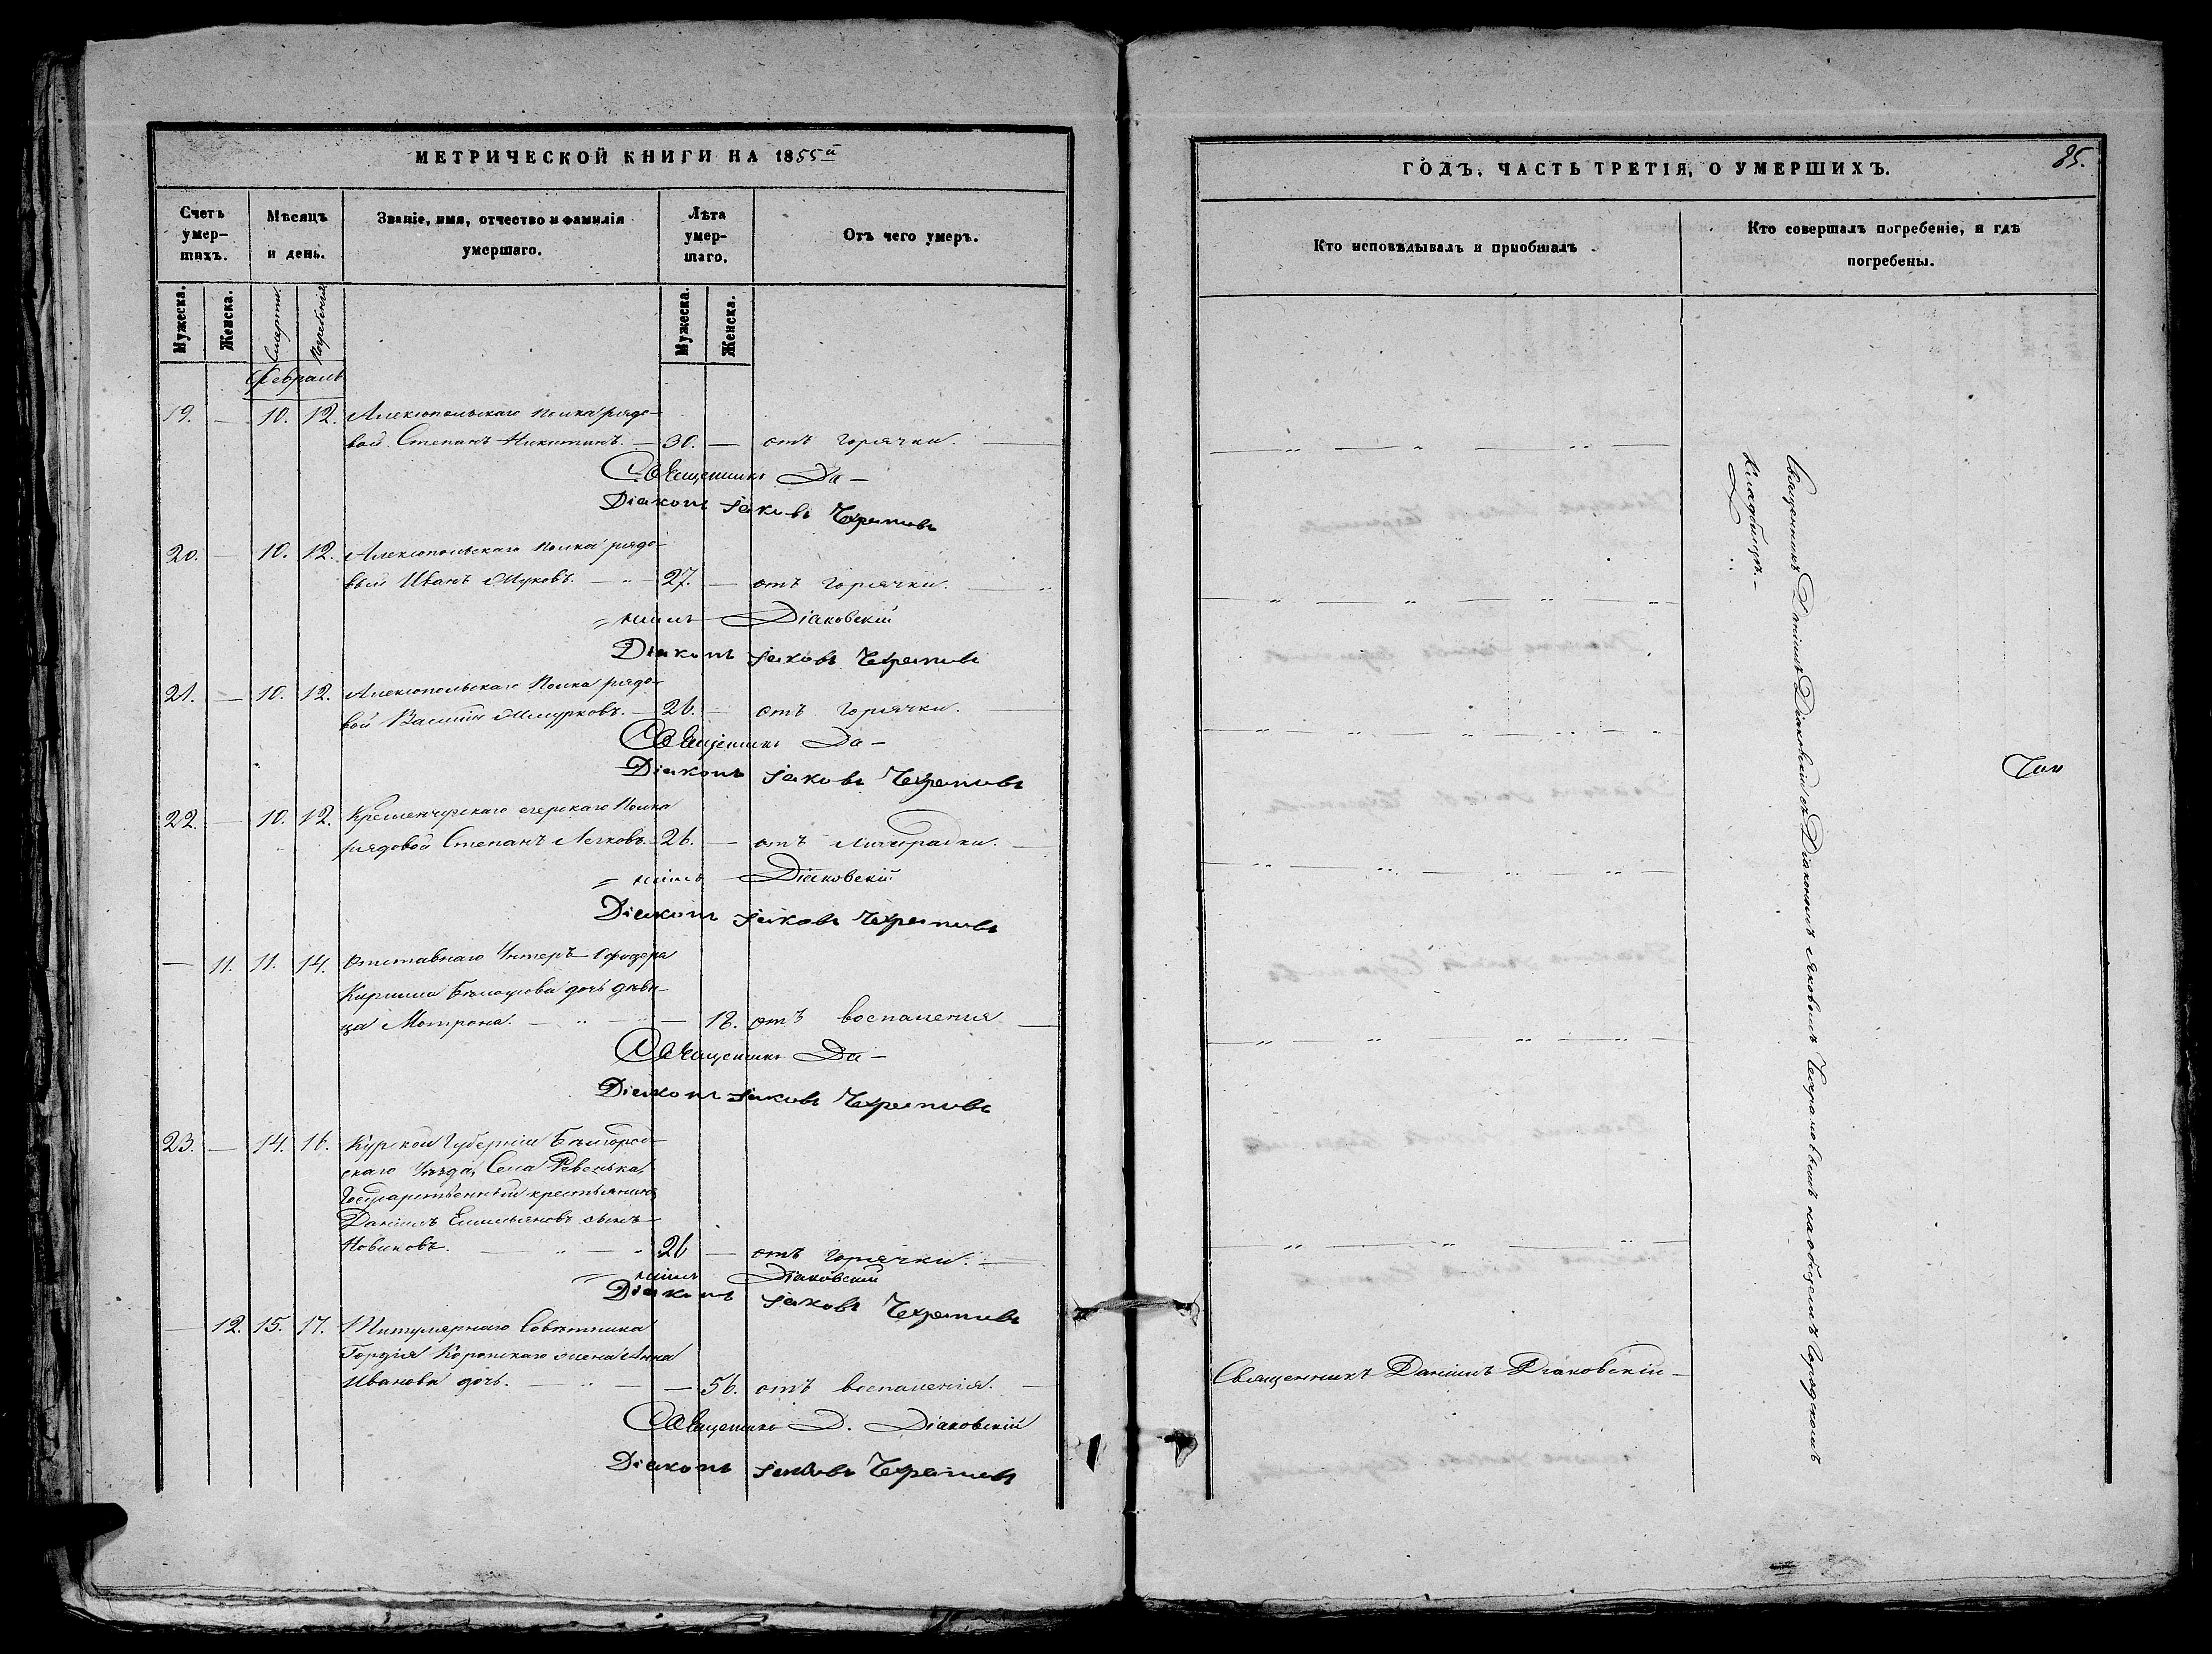 МЕТРИЧЕСКОЙ КНИГИ НА 1855й
Счетъ умер-
шихъ.
Мѣсяцъ
и день.
Званіе, имя, отчество и фамилія
умершаго.
Лѣта
умер-
шаго.
Отъ чего умеръ.
Мужеска.
Женска.
Смерти.
Погребенія
Мужеска.
Женска.
Февраль
19. — 10. 12. Алексопольскаго полка рядо-
вой Степанъ Никитинъ. — 30. — отъ горячки.
Священникъ Да-
Діаконъ Іаковъ
20. — 10. 12. Алексопольскаго полка рядо-
вый Иванъ Жуковъ. — 27. — отъ горячки.
ніилъ Діаковскій
Діаконъ Іаковъ
21. — 10. 12. Алексопольскаго полка рядо-
вой Василій — 26. — отъ горячки.
Священникъ Да-
Діаконъ Іаковъ
22. — 10. 12. Кременчугскаго егерскаго полка
рядовой Степанъ 26. — отъ лихорадки.
ніилъ Діаковскій
Діаконъ Іаковъ
— 11. 11. 14. Отставнаго Унтеръ-офицера
Кирилла дочь дѣви-
ца Мотрона. — 18. отъ воспаленія
Священникъ Да-
Діаконъ Іаковъ
23. — 14. 16. Курской Губерніи Бѣлгород-
скаго Уѣзда, Села
Государственный крестьянинъ
Даніилъ Емельяновъ сынъ
Новиковъ. — 26 — отъ горячки.
ніилъ Діаковскій
Діаконъ Іаковъ
— 12. 15. 17. Титулярнаго Совѣтника
Гордія жена Анна
Иванова дочь. — 56. отъ воспаленія.
Священникъ Д. Діаковскій
Діаконъ Іаковъ
ГОДЪ, ЧАСТЬ ТРЕТІЯ, О УМЕРШИХЪ.
85.
Кто исповѣдывалъ и приобщалъ
Кто совершалъ погребеніе, и гдѣ
погребены.
Священникъ Даніилъ Діаковскій
Священникъ Даніилъ Діаковскій съ Діакономъ Яковомъ на общемъ городскомъ
кладбищѣ.